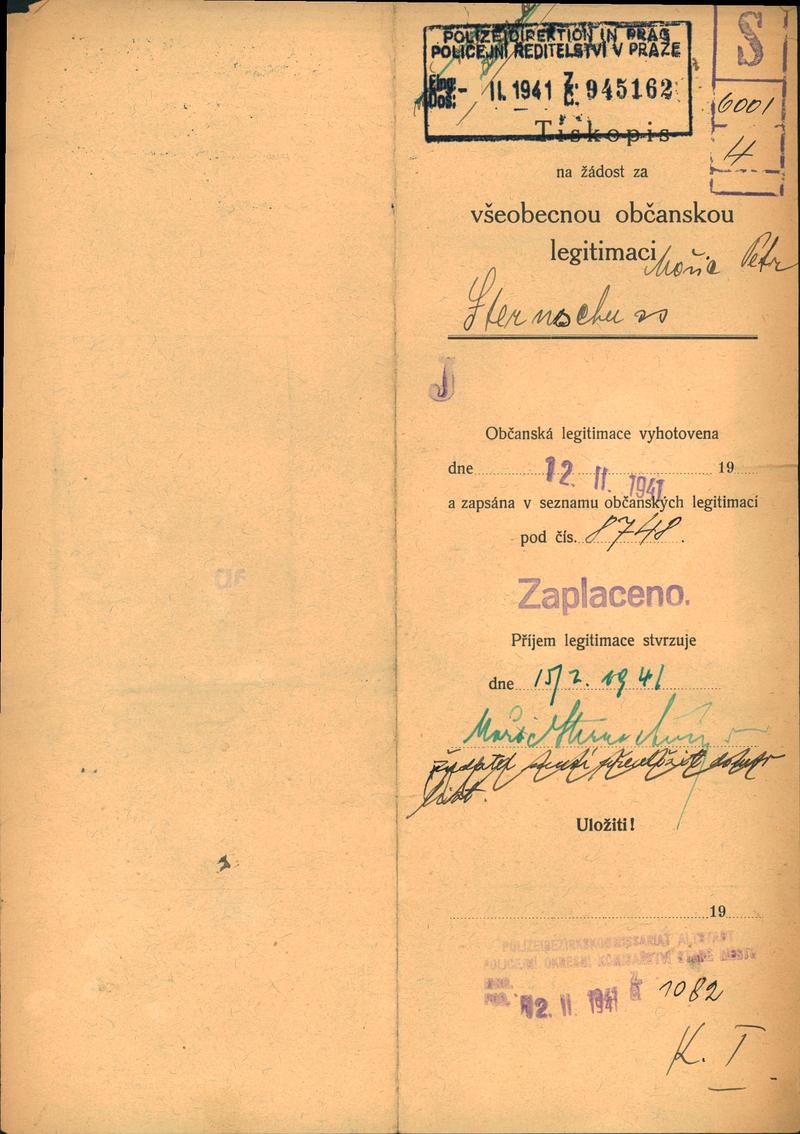 POLIZEIDIREKTION IN PRAG
POLICEJNÍ ŘEDITELSTVÍ V PRAZE
Eing.
Doš.
- II. 1941
Z. Č. 945162
S
6001
4
Tiskopis
na žádost za
všeobecnou občanskou
legitimaci
Petr
Sternschuss
J
Občanská legitimace vyhotovena
dne 12. II. 1941 19
a zapsána v seznamu občanských legitimací
pod čís. 8748.
Zaplaceno.
Příjem legitimace stvrzuje
dne 15/2. 1941
Uložiti!
19
POLIZEIBEZIRKSKOMMISSARIAT ALTSTADT
POLICEJNÍ OKRESNÍ KOMISAŘSTVÍ STARÉ MĚSTO
12. II 1941
1082
K. I